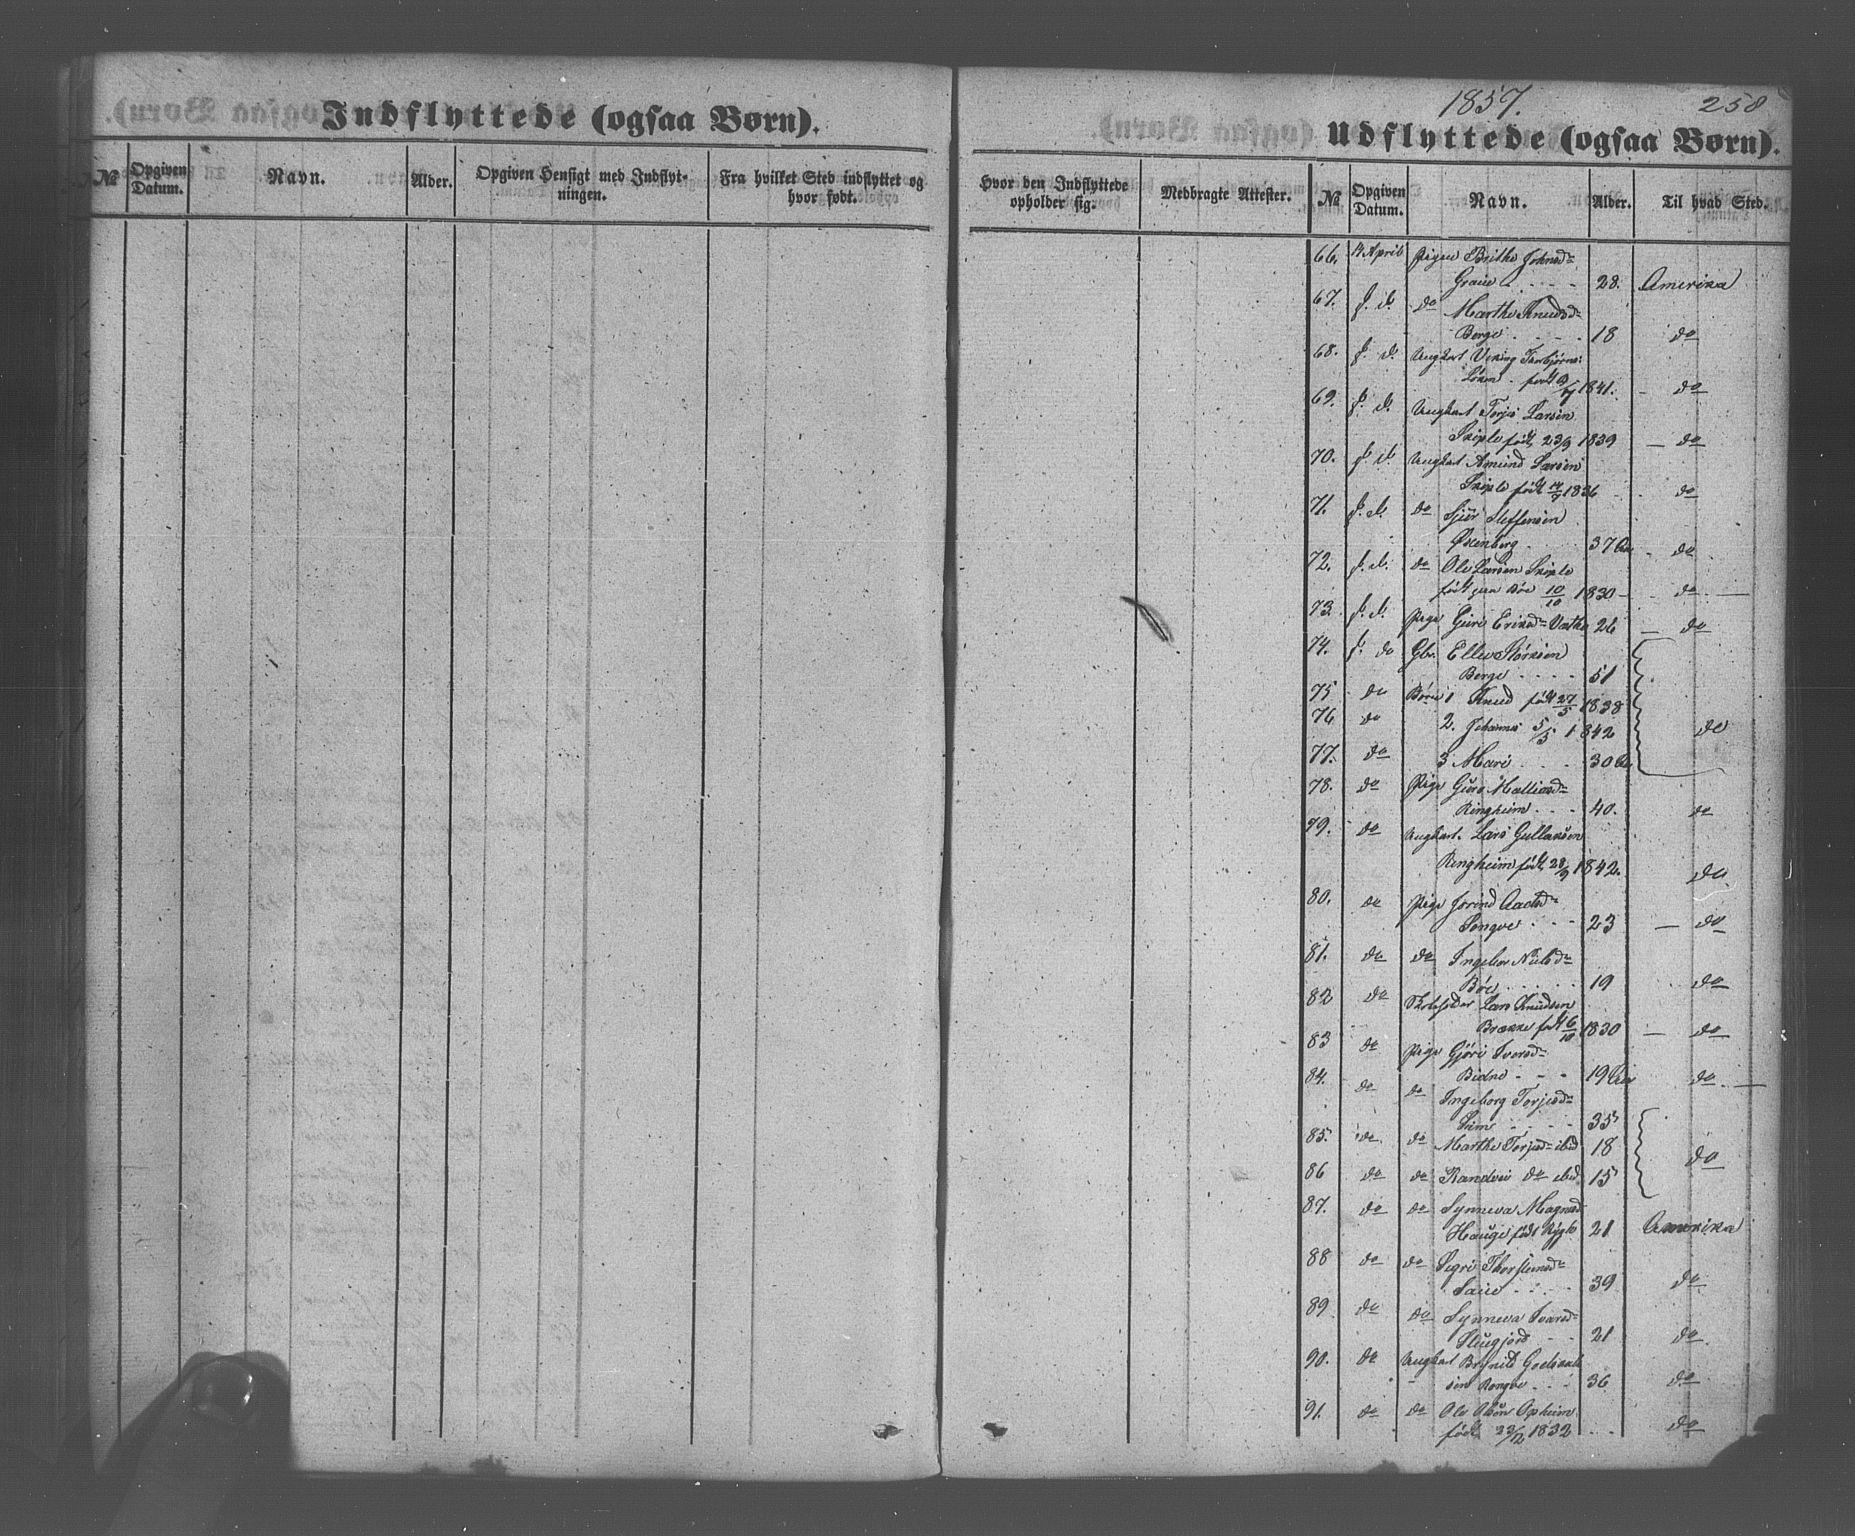 Indflyttede (ogsaa Børn).
№
Opgiven Datum.
Navn.
Alder.
Opgiven Hensigt med Indflyt-
ningen.
Fra hvilket Sted indflyttet og
hvor født.
1857.
258
Udflyttede (ogsaa Børn).
Hvor den Indflyttede
opholder sig.
Medbragte Attester.
№
Opgiven Datum.
Navn.
Alder.
Til hvad Sted.
66. 14 April Pigen Brithe Johnsd=
28. Amerika
67. f. d. do Marthe Knudsd=
Berge 18 do
68. f. d. Ungkarl Viking Thorbjørns.
født 1841. do
69. f. d. Ungkarl Torjs Larsen
Skiple født 23/9 1839 do
70. f. d. Ungkarl Amund Larsen
Skiple født 1836 do
71. f. d. do Sjur Steffensen
Øxenberg 37 do
72. f. d. do Ole Larsen Skiple
født paa Bøe 10/10 1830 do
73. f. d. Pige Guri Eriksd= 26 do
74. f. do Gbr. Ellev Størksen
Berge 51
75 do Børn 1 Knud født 27/5 1838
76 do 2. Johannes 5/5 1842 do
77. do 3 Mari 30
78. do Pige Guro
Ringheim 40. do
79. do Ungkarl. Lars Gullaksen
Ringheim født 28/9 1842. do
80. do Pige Jorind
23 do
81. do do Ingebor Nielsd=
Bøe 19 do
82 do Lars Knudsen
Brække født 6/10 1830 do
83 do Pige Gjøri Iversd=
Bidne 19 do
84. do do Ingeborg Torjesd=
35
85. do do Marthe Torjesd= ibid 18 do
86 do do Randvei do ibid 15
87. do do Synneva Magnesd
Hauge født 21 Amerika
88 do do Sigri Thorsteinsd=
Saue 39 do
89 do do Synneva Ivarsd=
21 do
90. do Ungkarl Brynild
sen Rongve 36 do
91. do do Ole Olsen Opheim
født 22/12 1832 do